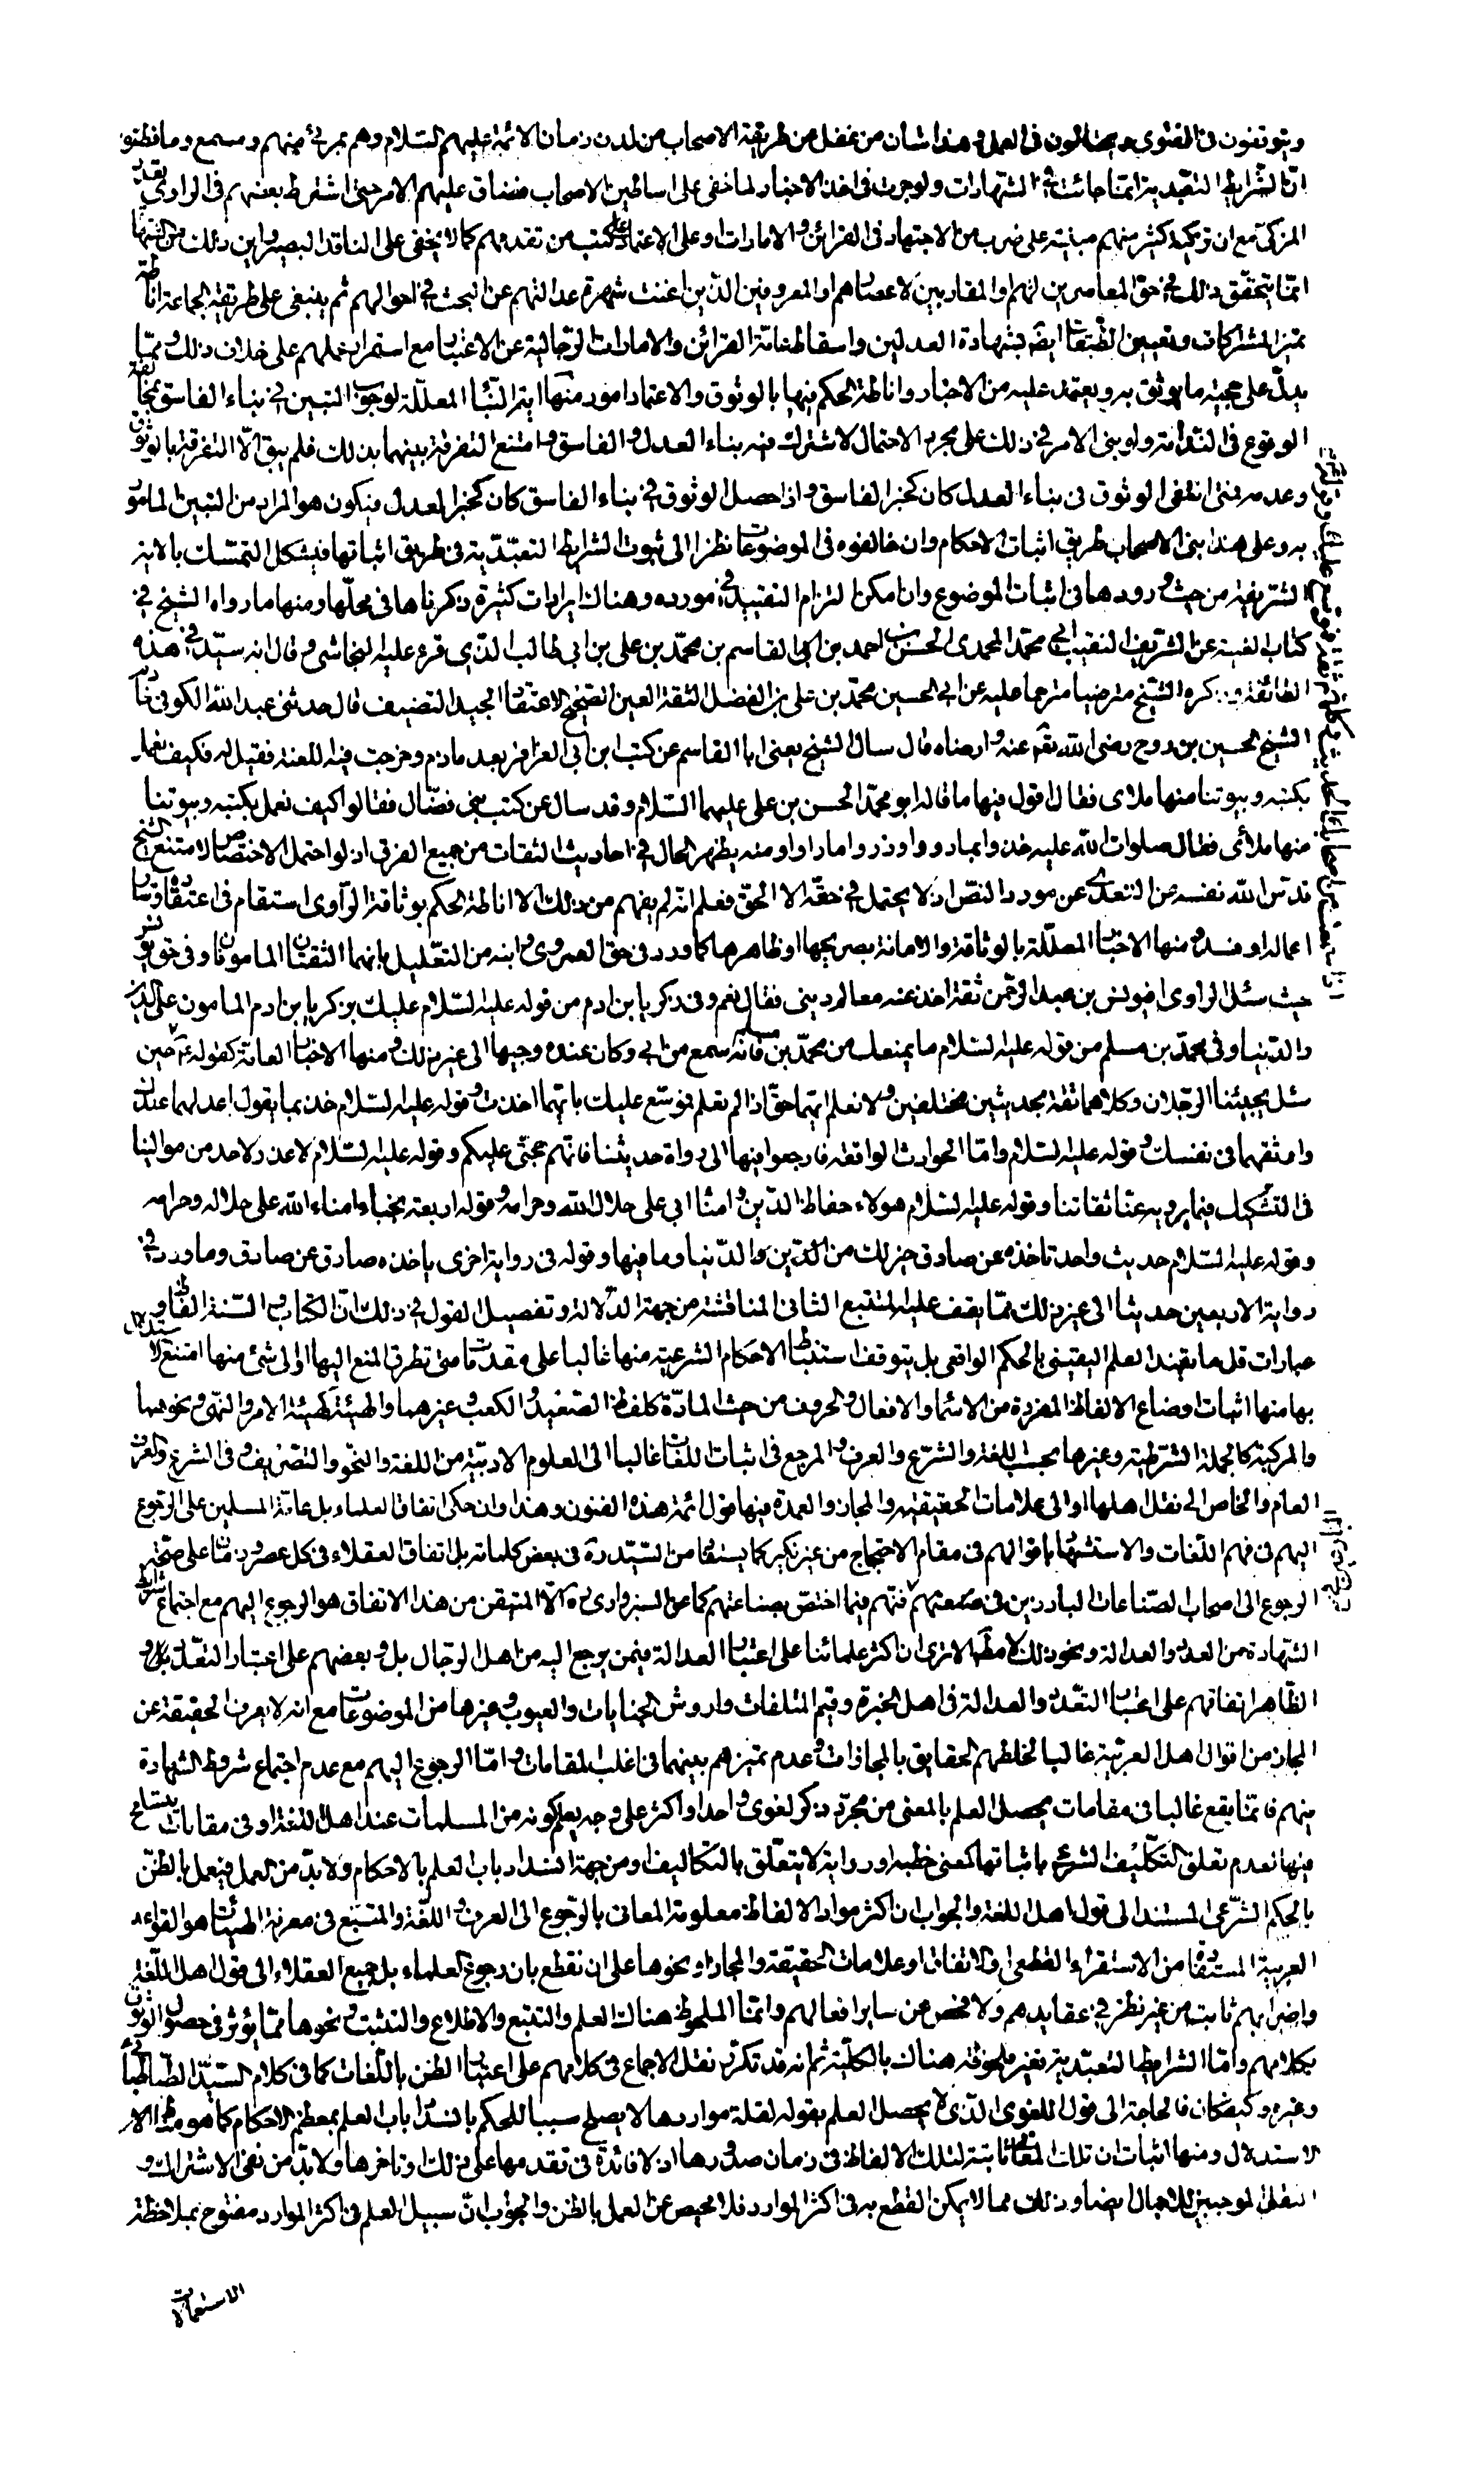 ويتوقفون فى الفتوى ويحتالون فى العمل وهذا شان من غفل من طريقة الاصحاب من لدن زمان الائمة عليهم السلام وهم بمرئ منهم ومسمع وما فطنوا
ان الشرايط التعبدية انما جائت فى الشهادات ولو جرت فى اخذ الاخبار لما خفى على اساطين الاصحاب فضاق عليهم الامر حتى اشترط بعضهم فى الراوى تعدد
المزكى مع ان تزكية كثير منهم مبنية على ضرب من الاجتهاد فى القرائن والامارات او على الاعتماد على كتب من تقدمهم كما لا يخفى على الناقد البصير واين ذلك من الشهادة
انما يتحقق ذلك فى حق المعاصرين لهم والمقاربين لاعصارهم او المعروفين الذين اغنت شهرة عدالتهم عن البحث فى احوالهم ثم ينبغى على طريقة الجماعة اناطة
تميز المشتركات وتعيين الطبقات ايضا بشهادة العدلين واسقاط عامة القرائن والامارات الرجالية عن الاعتبار مع استمرار عملهم على خلاف ذلك ومما
يدل على حجية ما يوثق به ويعتمد عليه من الاخبار واناطة الحكم فيها بالوثوق والاعتماد امور منها اية النبأ المعللة لوجوب التبين فى بناء الفاسق بمخافة
الوقوع فى الندامة ولو بنى الامر فى ذلك على مجرد الاحتمال لاشترك فيه بناء العدل والفاسق وامتنع التفرقة بينهما بذلك فلم يبق الا التفرقة بالوثوق
وعدمه فمتى انتفى الوثوق فى بناء العدل كان كخبر الفاسق واذا حصل الوثوق فى بناء الفاسق كان كخبر العدل فيكون هو المراد من التبين المامور
به وعلى هذا بنى الاصحاب طريق اثبات الاحكام وان خالفوه فى الموضوعات نظرا الى ثبوت الشرايط التعبدية فى طريق اثباتها فيشكل التمسك بالاية
الشريفة من حيث ورودها فى اثبات الموضوع وان امكن التزام التقييد فى مورده وهناك ايرادات كثيرة ذكرناها فى محلها ومنها ما رواه الشيخ فى
كتاب الغيبة عن الشريف النقيب ابى محمد المحمدى الحسن بن احمد بن ابى القاسم بن محمد بن على بن ابى طالب الذى قرء عليه النجاشى وقال انه سيد فى هذه
الطائفة وذكره الشيخ مترضيا مترحما عليه عن ابى الحسين محمد بن على بن الفضل الثقة العين الصحيح الاعتقاد الجيد التصنيف قال حدثنى عبد الله الكوفى خادم
الشيخ الحسين بن روح رضى الله تعم عنه وارضاه قال سال الشيخ يعنى ابا القاسم عن كتب ابن ابى العزاقر بعد ما ذم وخرجت فيه اللعنة فقيل له فكيف نعمل
بكتبه وبيوتنا منها ملاى فقال اقول فيها ما قاله ابو محمد الحسن بن على عليهما السلام وقد سال عن كتب بنى فضال فقالوا كيف نعمل بكتبه وبيوتنا
منها ملأى فقال صلوات الله عليه خذوا بما رووا وذروا ما راوا ومنه يظهر الحال فى احاديث الثقات من جميع الفرق اذ لو احتمل الاختصاص لامتنع الشيخ
قدس الله نفسه عن التعدى عن مورد النص اذ لا يحتمل فى حقه الا الحق فعلم انه لم يفهم من ذلك الا اناطة الحكم بوثاقة الراوى استقام فى اعتقاده وساير
اعماله او فسد ومنها الاخبار المعللة بالوثاقة والامانة بصريحها او ظاهرها كما ورد فى حق العمروى وابنه من التعليل بانهما الثقتان المامونان وفى حق يونس
حيث سئل الراوى افيونس بن عبد الرحمن ثقة اخذ عنه معالم دينى فقال نعم وفى زكريا بن ادم من قوله عليه السلام عليك بزكريا بن ادم المامون على الدين
والدنيا وفى محمد بن مسلم من قوله عليه السلام ما يمنعك من محمد بن مسلم فانه سمع من ابى وكان عنده وجيها الى غير ذلك ومنها الاخبار العامة كقوله ع حين
سئل يجيئنا الرجلان وكلاهما ثقة بحديثين مختلفين ولا نعلم ايهما حق اذا لم تعلم فموسع عليك بايهما اخذت وقوله عليه السلام خذ بما يقول اعدلهما عندك
واوثقهما فى نفسك وقوله عليه السلام واما الحوادث الواقعة فارجعوا فيها الى رواة حديثنا فانهم حجتى عليكم وقوله عليه السلام لا عذر لاحد من موالينا
فى التشكيك فيما يرويه عنا ثقاتنا وقوله عليه السلام هولاء حفاظ الدين وامناء ابى على حلال الله وحرامه وقوله اربعة نجباء امناء الله على حلاله وحرامه
وقوله عليه السلام حديث واحد تاخذه عن صادق خير لك من الدين والدنيا وما فيها وقوله فى رواية اخرى ياخذه صادق عن صادق وما ورد فى
رواية الاربعين حديثا الى غير ذلك مما يقف عليه المتتبع الثانى المناقشة من جهة الدلالة وتفصيل القول فى ذلك ان الكتاب والسنة الفاظ و
عبارات قل ما يفيد العلم اليقينى بالحكم الواقعى بل يتوقف استنباط الاحكام الشرعية منها غالبا على مقدمات متى تطرق المنع اليها او الى شئ منها امتنع الاستدلال
بها منها اثبات اوضاع الالفاظ المفردة من الاسماء والافعال والحروف من حيث المادة كلفظ الصعيد والكعب وغيرهما والهيئة كهيئة الامر والنهى ونحوهما
والمركبة كالجملة الشرطية وغيرها بحسب اللغة والشرع والعرف والمرجع فى اثبات اللغات غالبا الى العلوم الادبية من اللغة والنحو والتصريف وفى الشرع والعرف
العام والخاص الى نقل اهلها او الى علامات الحقيقة والمجاز والعمدة فيها قول ائمة هذه الفنون وهذا وان حكى اتفاق العلماء بل عامة المسلمين على الرجوع
اليهم فى فهم اللغات والاستشهاد باقوالهم فى مقام الاحتجاج من غير نكير كما يستفاد من السيد ره فى بعض كلماته بل اتفاق العقلاء فى كل عصر وزمان على صحة
الرجوع الى اصحاب الصناعات البارزين فى صنعتهم فيما اختص بصناعتهم كما عن السبزوارى ره الا ان المتيقن من هذا الاتفاق هو الرجوع اليهم مع اجتماع شرايط
الشهادة من العدد والعدالة ونحو ذلك لا مطلقا الا ترى ان اكثر علمائنا على اعتبار العدالة فيمن يرجع اليه من اهل الرجال بل وبعضهم على اعتبار التعدد بل و
الظاهر اتفاقهم على اعتبار التعدد والعدالة فى اهل الخبرة وقيم المتلفات واروش الجنايات والعيوب وغيرها من الموضوعات مع انه لا يعرف الحقيقة عن
المجاز من اقوال اهل العربية غالبا لخلطهم الحقايق بالمجازات وعدم تميزهم بينهما فى اغلب المقامات واما الرجوع اليهم مع عدم اجتماع شروط الشهادة
فيهم فانما يقع غالبا فى مقامات يحصل العلم بالمعنى من مجرد ذكر لغوى واحد او اكثر على وجه يعلم كونه من المسلمات عند اهل اللغة او فى مقامات يتسامح
فيها لعدم تعلق التكليف الشرعى باثباتها كمعنى خطبة او رواية لا يتعلق بالتكاليف او من جهة انسداد باب العلم بالاحكام ولا بد من العمل فيعمل بالظن
بالحكم الشرعى المستند الى قول اهل اللغة والجواب ان اكثر مواد الالفاظ معلومة المعانى بالرجوع الى العرف واللغة والمتبع فى معرفة الهيئات هو القواعد
العربية المستفادة من الاستقراء القطعى والاتفاق او علامات الحقيقة والمجاز او نحوها على ان نقطع بان رجوع العلماء بل جميع العقلاء الى قول اهل اللغة
واضرابهم ثابت من غير نظر فى عقايدهم ولا فحص عن ساير افعالهم وانما الملحوظ هناك العلم والتتبع والاطلاع والتثبت ونحوها مما يؤثر فى حصول الوثوق
بكلامهم واما الشرايط التعبدية فغير ملحوظة هناك بالكلية ثم انه قد تكرر نقل الاجماع فى كلامهم على اعتبار الظن باللغات كما فى كلام السيد الطباطبائى
وغيره وكيف كان فالحاجة الى قول اللغوى الذى لا يحصل العلم بقوله لقلة مواردها لا يصلح سببا للحكم بانسداد باب العلم بمعظم الاحكام كما هو
الاستدلال ومنها اثبات ان تلك المعانى ثابتة لتلك الالفاظ فى زمان صدورها اذ لا فائدة فى تقدمها على ذلك وتاخرها ولا بد من نفى الاشتراك و
النقل الموجبين للاجمال ايضا وذلك مما لا يمكن القطع به فى اكثر الموارد فلا محيص عن العمل بالظن والجواب ان سبيل العلم فى اكثر الموارد مفتوح بملاحظة
الاستعمالات